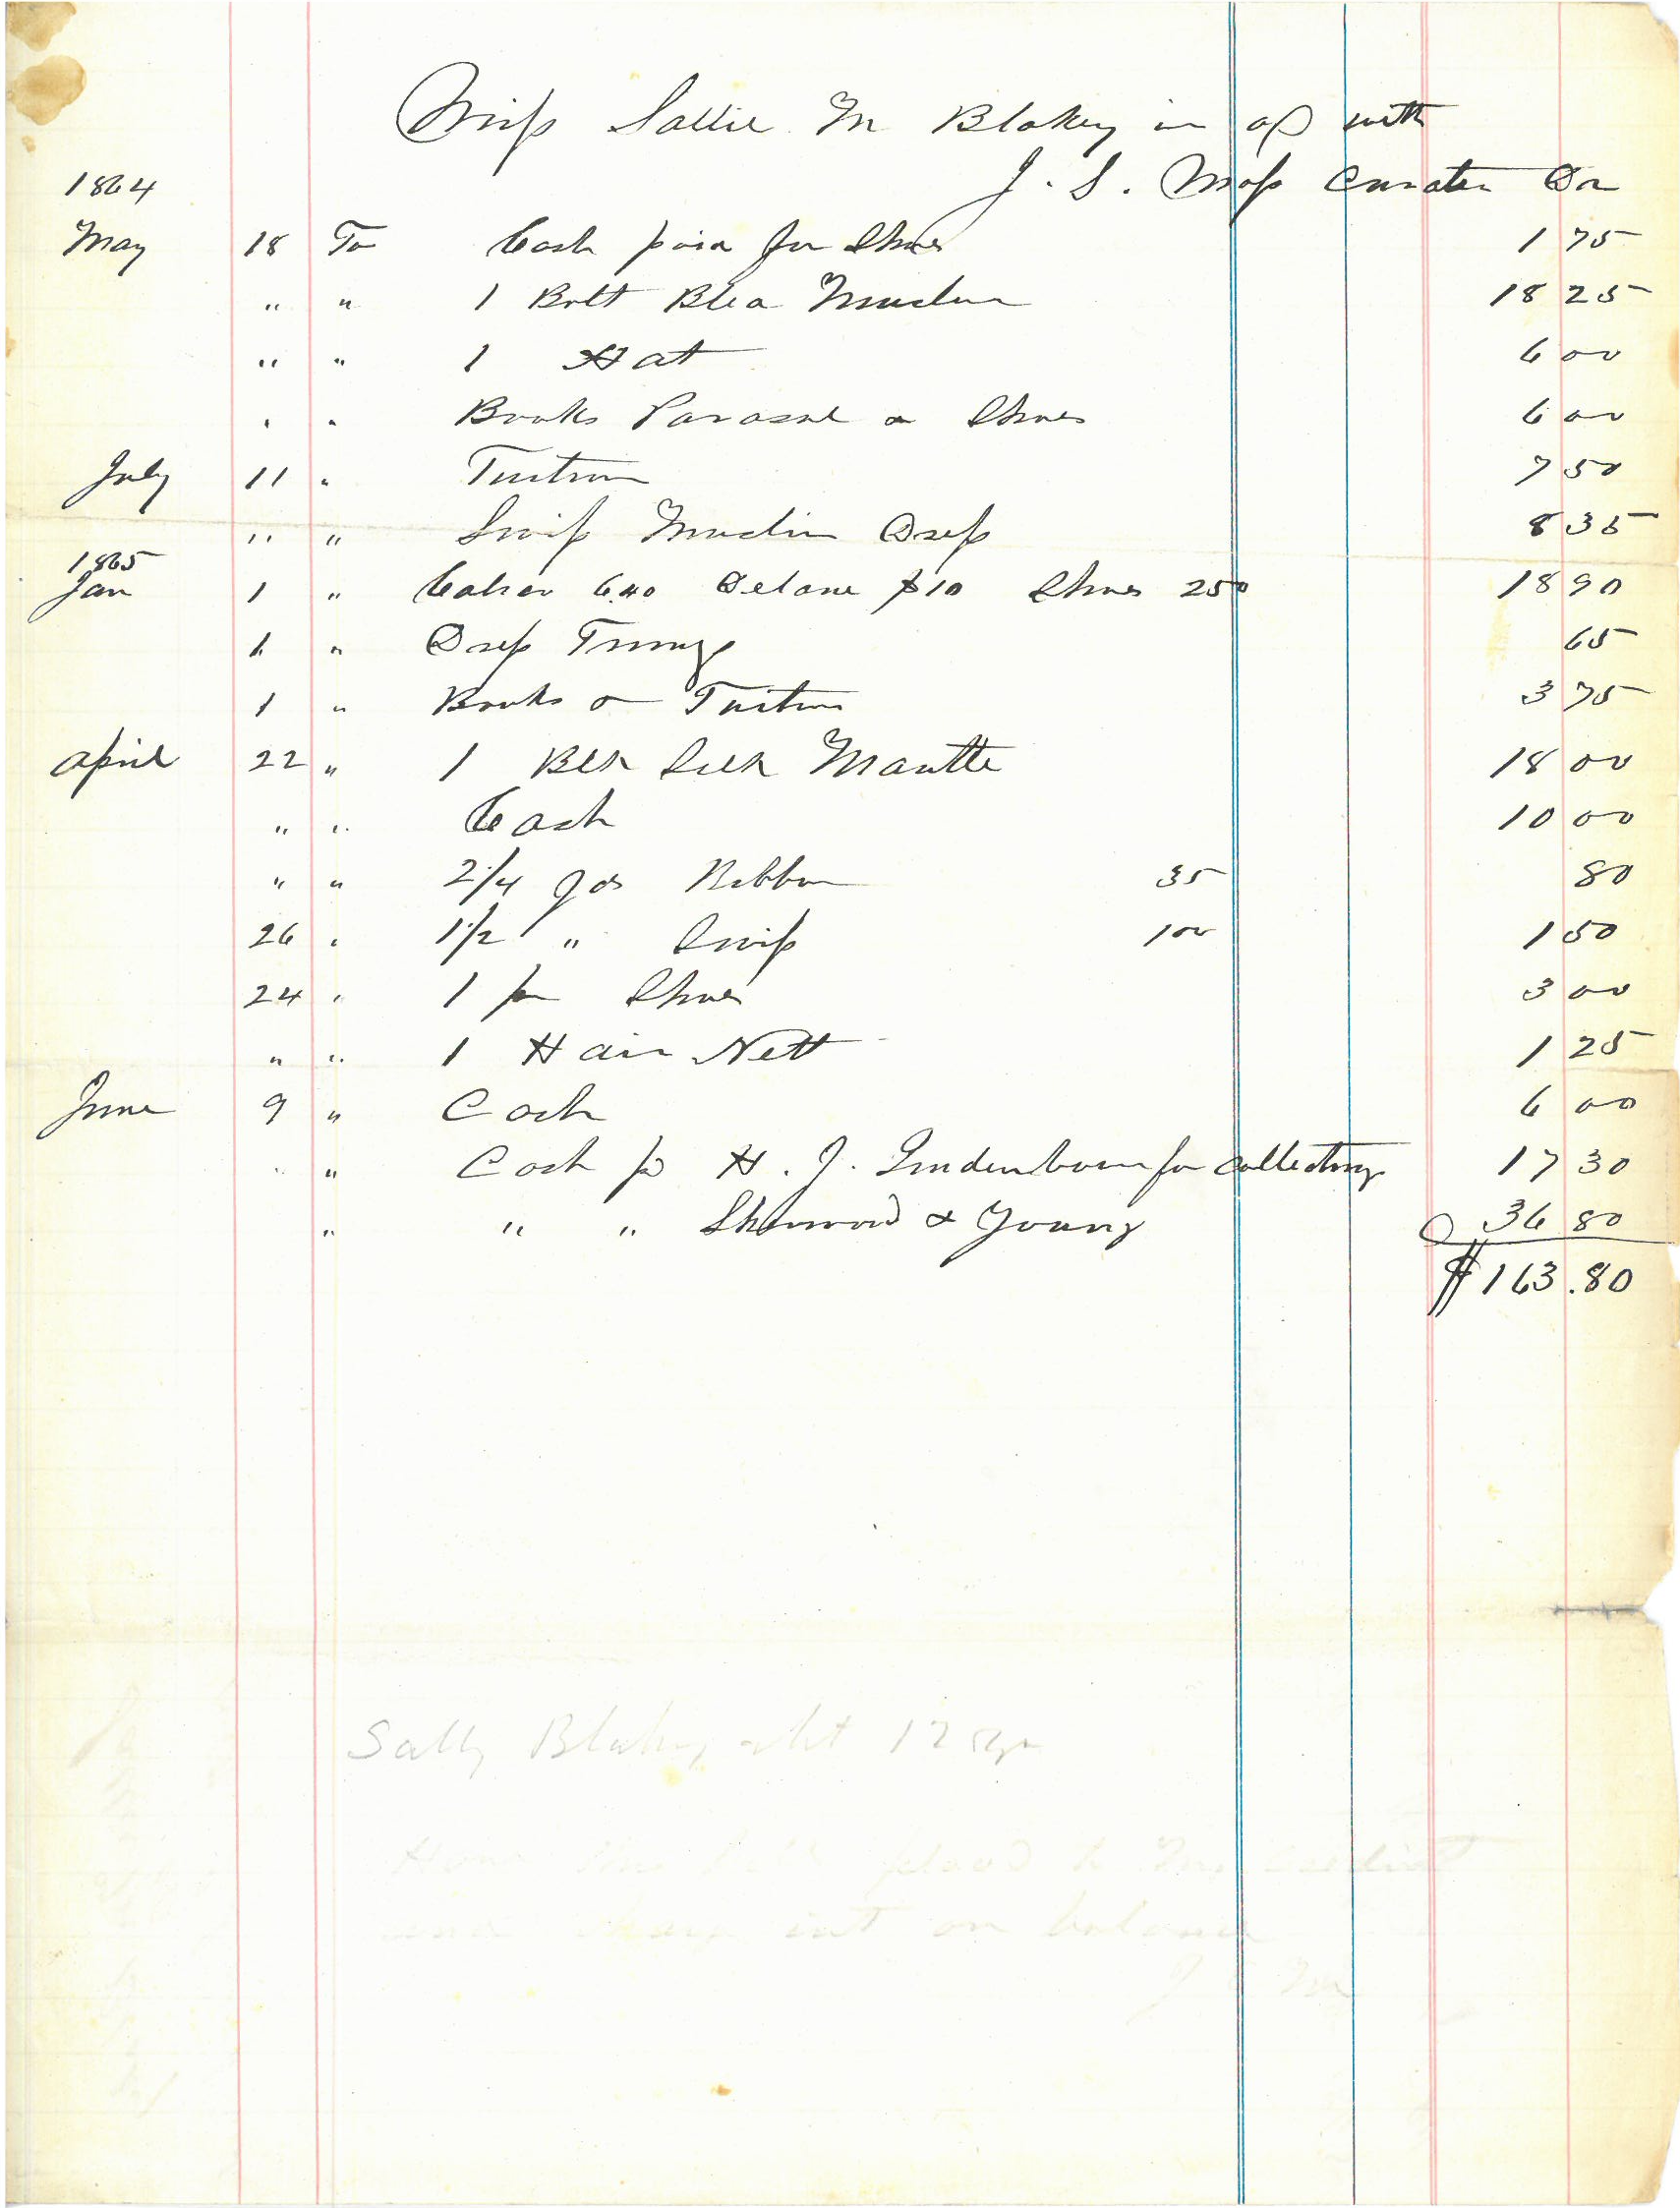 Miss Sallie M Blakey in a/c with
J. S. Moss Curator Dr
1864
May 18 To Cash paid for Shoes 1 75
" " 1 Bolt Blea Muslin 18 25
" " 1 Hat 6 00
" " Books Parasol & Shoes 6 00
July 11 " Tuition 7 50
" " Swiss Muslin Dress 8 35
1865
Jan 1 " Calico 640 Delane $10 Shoes 250 18 90
1 " Dress Trimgs 65
1 " Books & Tuition 3 75
April 22 " 1 Blk Silk Mantle 18 00
" " Cash 10 00
" " 2 1/4 yds Ribbon 35 80
26 " 1 1/2 " Swiss 100 1 50
24 " 1 pr Shoes 3 00
" " 1 Hair Nett 1 25
June 9 " Cash 6 00
" " Cash pd H. J. Lindenbower for collecting 17 30
" " " Sherwood & Young 36 80
$163.80
Sally Blakey
placed to my credit
int on balance